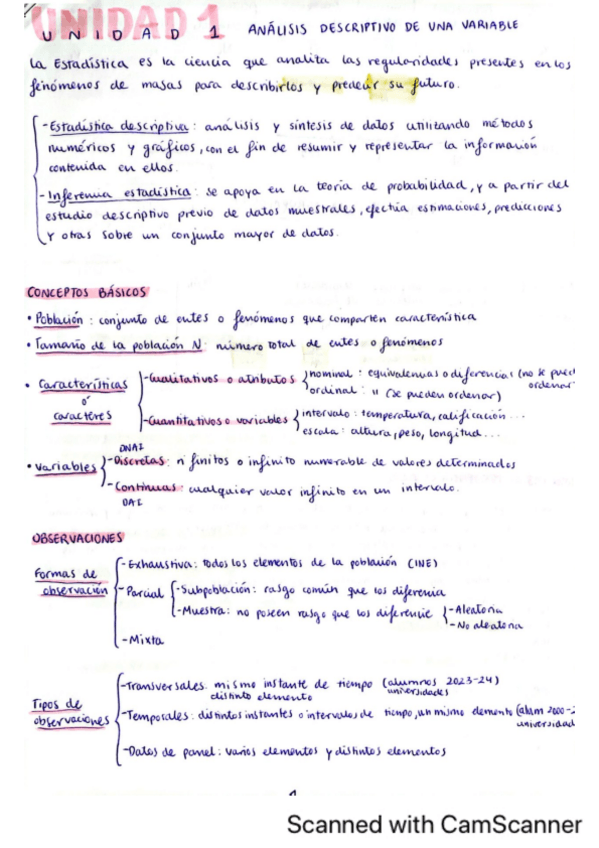 UNIDAD 1 ANÁLISIS DESCRIPTIVO DE UNA VARIABLE
La Estadística es la ciencia que analiza las regularidades presentes en los
fenómenos de masas para describirlos y predecir su futuro.
- Estadística descriptiva: análisis y síntesis de datos utilizando métodos
numéricos y gráficos, con el fin de resumir y representar la información
contenida en ellos.
- Inferencia estadística: se apoya en la teoría de probabilidad, y a partir del
estudio descriptivo previo de datos muestrales, efectúa estimaciones, predicciones
y otras sobre un conjunto mayor de datos.
CONCEPTOS BÁSICOS
• Población: conjunto de entes o fenómenos que comparten característica
• Tamaño de la población N: número total de entes o fenómenos
• Características ó caracteres
- Cualitativos o atributos
nominal: equivalencias o diferencias (no se pued
ordenar
ordinal: " (se pueden ordenar)
- Cuantitativos o variables
intervalo: temperatura, calificación...
escala: altura, peso, longitud...
• Variables
DNAI
- Discretas: nº finitos o infinito numerable de valores determinados
- Continuas: cualquier valor infinito en un intervalo.
OBSERVACIONES
Formas de observación
- Exhaustiva: todos los elementos de la población (INE)
- Parcial
- Subpoblación: rasgo común que los diferencia
- Muestra: no poseen rasgo que los diferencie
- Aleatoria
- No aleatoria
- Mixta
Tipos de observaciones
- Transversales: mismo instante de tiempo (alumnos 2023-24)
distinto elemento universidades
- Temporales: distintos instantes o intervalos de tiempo, un mismo elemento (alum 2000-2
universidad
- Datos de panel: varios elementos y distintos elementos
1
Scanned with CamScanner